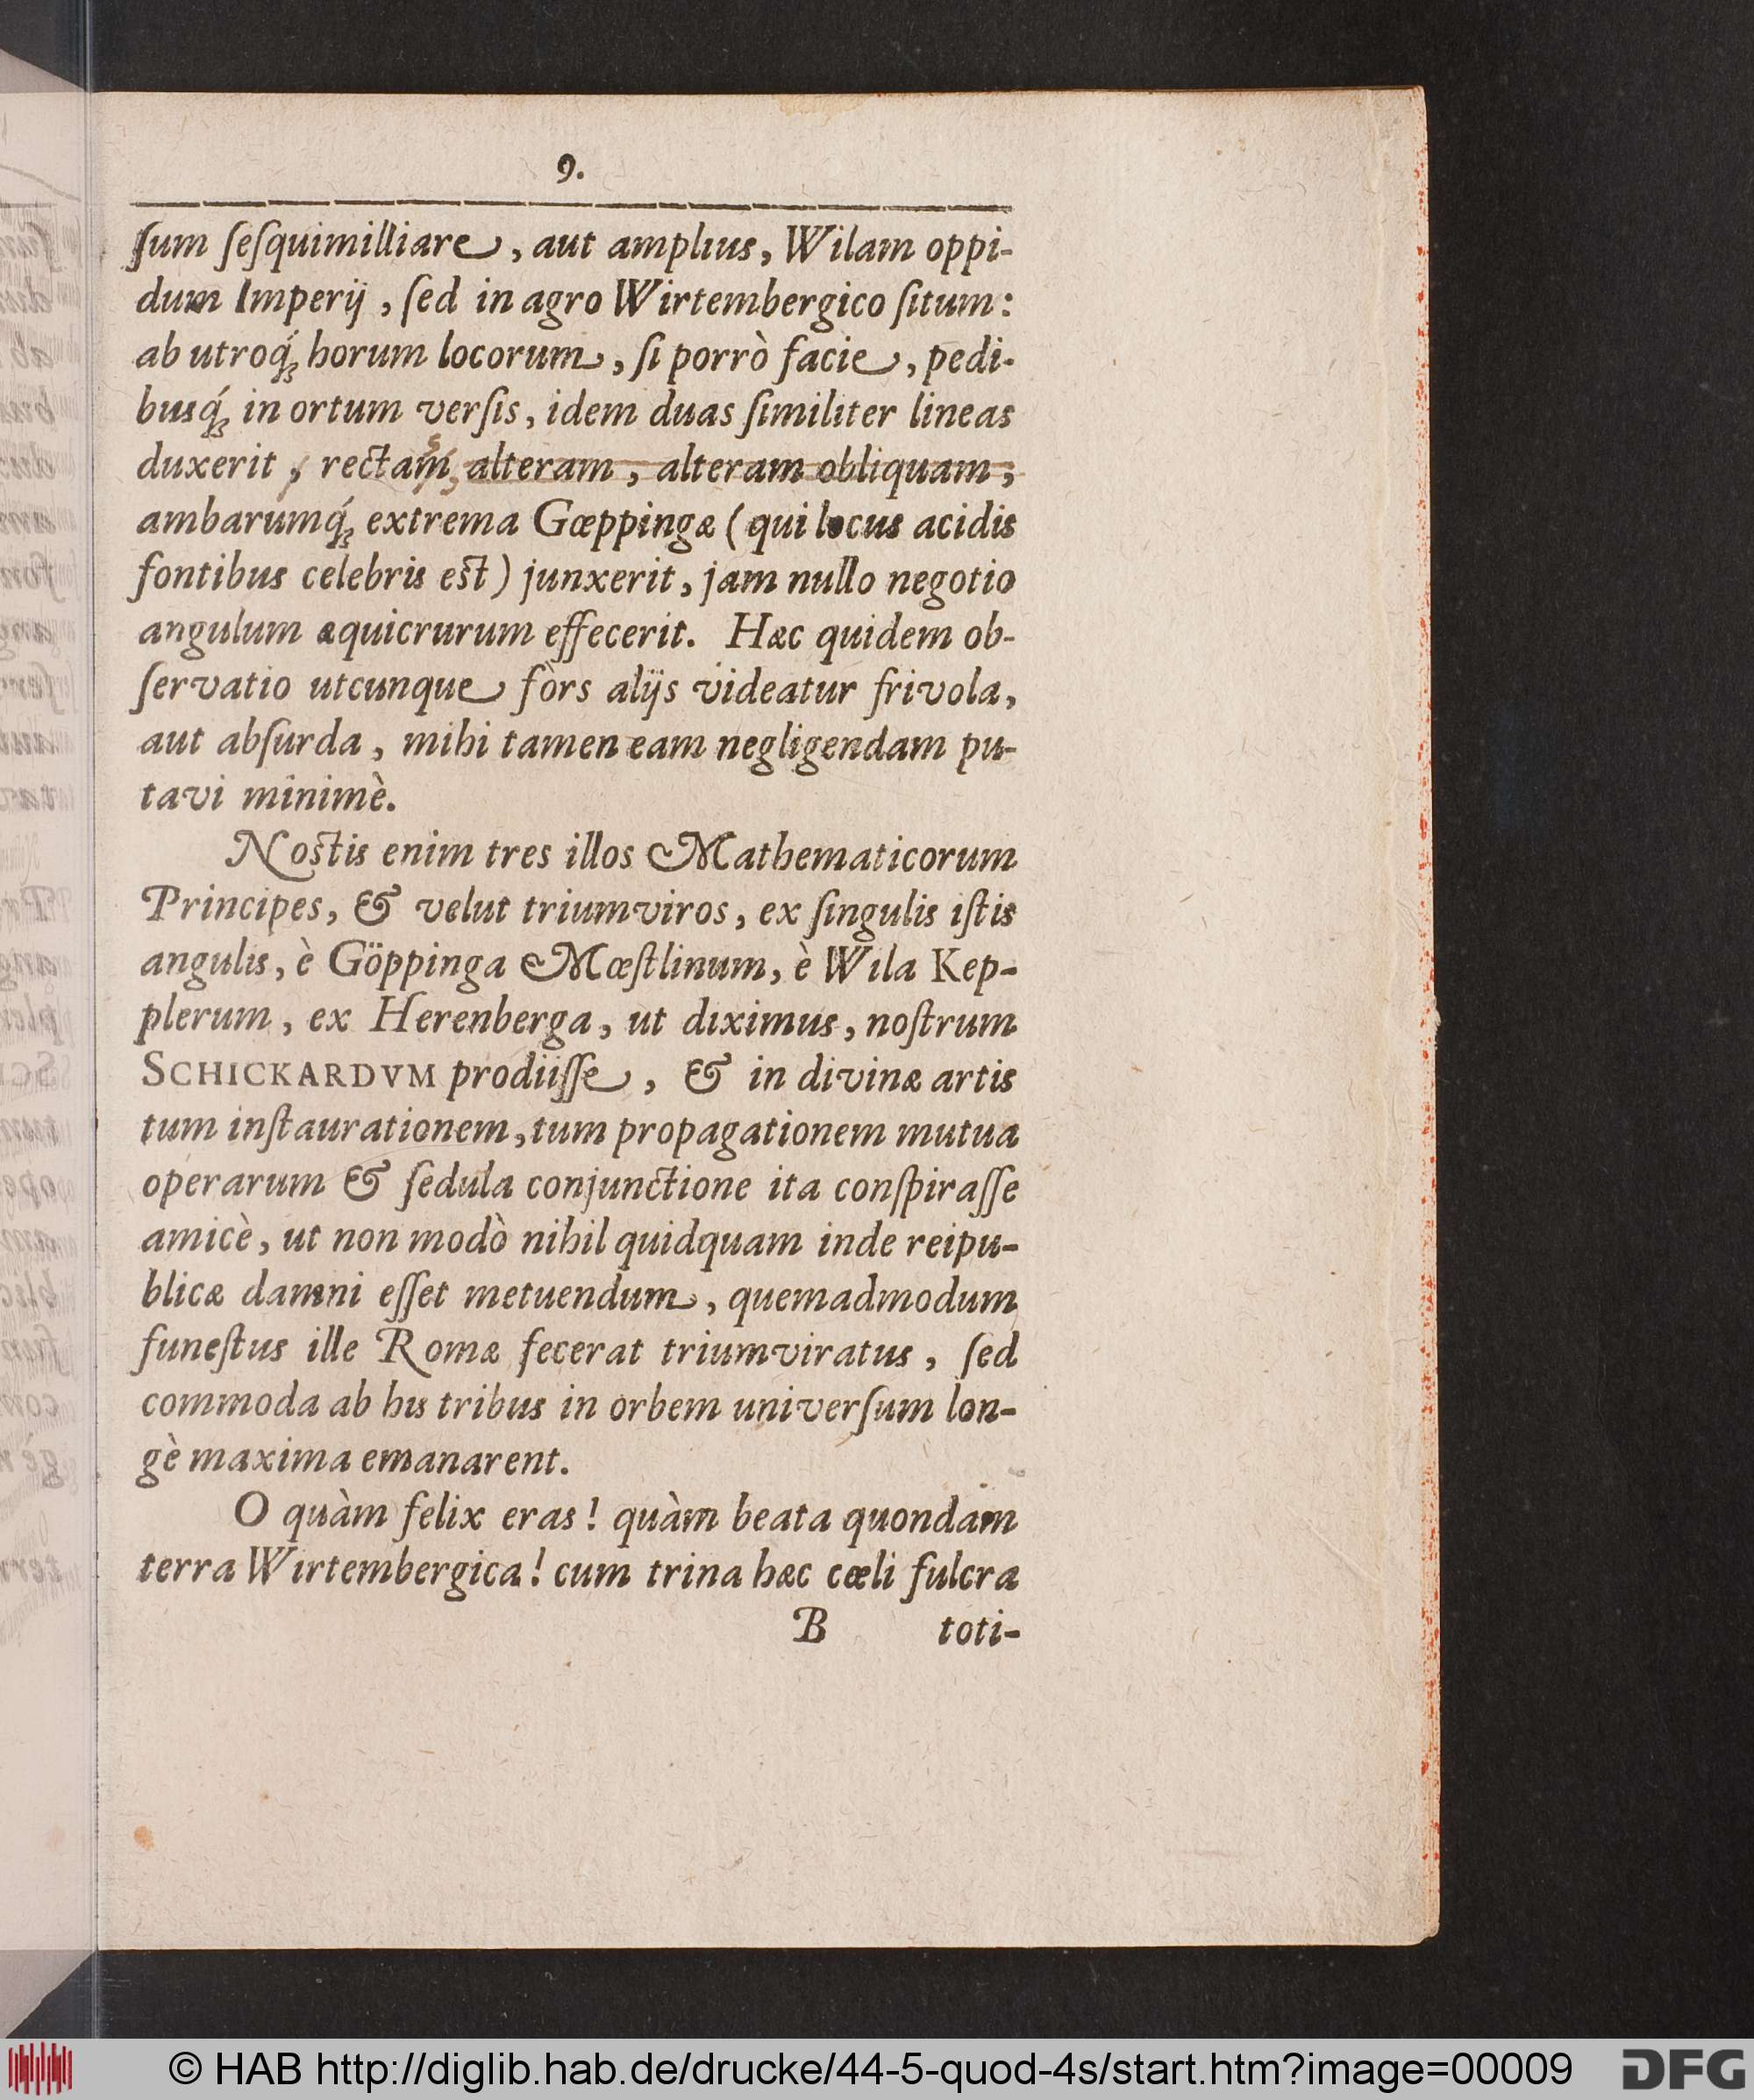 9.
ſum ſeſquimilliare, aut amplius, Wilam oppi-
dum Imperij, ſed in agro Wirtembergico ſitum:
ab utroq́ꝫ horum locorum, ſi porrò facie, pedi-
busq́ꝫ in ortum verſis, idem duas ſimiliter lineas
duxerit, rectam alteram, alteram obliquam;
ambarumq́ꝫ extrema Gœppingæ (qui locus acidis
fontibus celebris est) junxerit, jam nullo negotio
angulum æquicrurum effecerit. Hæc quidem ob-
ſervatio utcunque fors alijs videatur frivola,
aut abſurda, mihi tamen eam negligendam pu-
tavi minimè.
Nostis enim tres illos Mathematicorum
Principes, & velut triumviros, ex ſingulis iſtis
angulis, è Göppinga Mœſtlinum, è Wila Kep-
plerum, ex Herenberga, ut diximus, noſtrum
SCHICKARDVM prodiiſſe, & in divinæ artis
tum inſtaurationem, tum propagationem mutua
operarum & ſedula conjunctione ita conſpiraſſe
amicè, ut non modò nihil quidquam inde reipu-
blicæ damni eſſet metuendum, quemadmodum
funeſtus ille Romæ fecerat triumviratus, ſed
commoda ab his tribus in orbem univerſum lon-
gè maxima emanarent.
O quàm felix eras! quàm beata quondam
terra Wirtembergica! cum trina hæc cœli fulcra
B toti-
© HAB http://diglib.hab.de/drucke/44-5-quod-4s/start.htm?image=00009
DFG